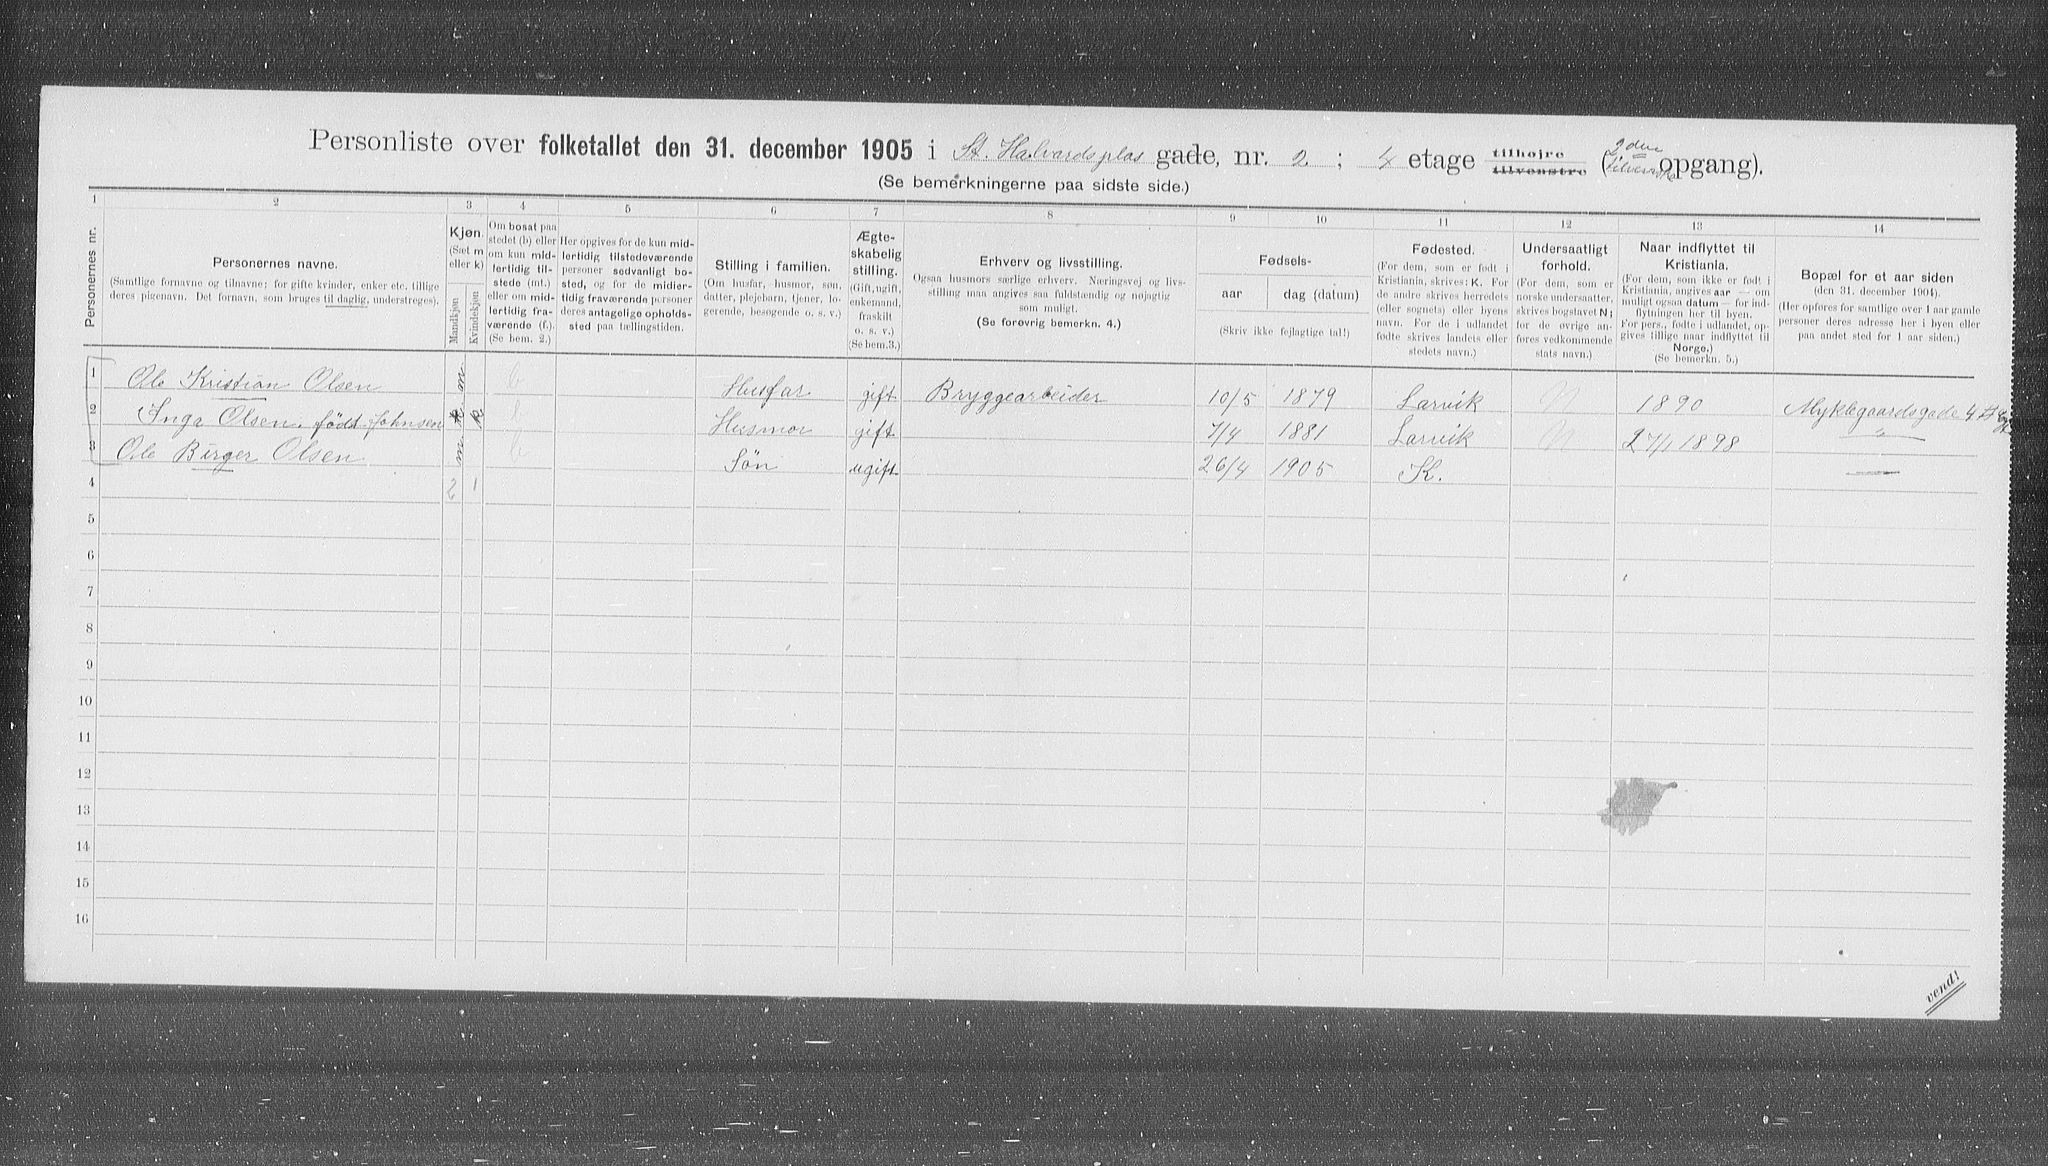 Personliste over folketallet den 31. december 1905 i St. Halvardsplas gade, nr. 2 ; 4 etage tilhøjre tilvenstre (2den opgang).
(Se bemerkningerne paa sidste side.)
1 2 3 4 5 6 7 8 9 10 11 12 13 14
Personernes nr.
Personernes navne.
(Samtlige fornavne og tilnavne; for gifte kvinder, enker etc. tillige
deres pigenavn. Det fornavn, som bruges til daglig, understreges).
Kjøn.
(Sæt m
eller k)
Mandkjøn
Kvindekjøn
Om bosat paa
stedet (b) eller
om kun mid-
lertidig til-
stede (mt.)
eller om mid-
lertidig fra-
værende (f.).
(Se bem. 2.)
Her opgives for de kun mid-
lertidig tilstedeværende
personer sedvanligt bo-
sted, og for de midler-
tidig fraværende personer
deres antagelige opholds-
sted paa tællingstiden.
Stilling i familien.
(Om husfar, husmor, søn,
datter, plejebarn, tjener, lo-
gerende, besøgende o. s. v.)
Ægte-
skabelig
stilling.
(Gift, ugift,
enkemand,
fraskilt
o. s. v.)
(Se bem.3.)
Erhverv og livsstilling.
Ogsaa husmors særlige erhverv. Næringsvej og livs-
stilling maa angives saa fuldstændig og nøjagtig
som muligt.
(Se forøvrig bemerkn. 4.)
Fødsels-
aar dag (datum)
(Skriv ikke fejlagtige tal!)
Fødested.
(For dem, som er født i
Kristiania, skrives: K. For
de andre skrives herredets
(eller sognets) eller byens
navn. For de i udlandet
fødte skrives landets eller
stedets navn.)
Undersaatligt
forhold.
(For dem, som er
norske undersaatter,
skrives bogstavet N;
for de øvrige an-
føres vedkommende
stats navn.)
Naar indflyttet til
Kristiania.
(For dem, som ikke er født i
Kristiania, angives aar — om
muligt ogsaa datum – for ind-
flytningen her til byen.
For pers., fødte i udlandet, op-
gives tillige naar indflyttet til
Norge.)
(Se bemerkn. 5.)
Bopæl for et aar siden
(den 31. december 1904).
(Her opføres for samtlige over 1 aar gamle
personer deres adresse her i byen eller
paa andet sted for 1 aar siden.)
1 Ole Kristian Olsen m b Husfar gift Bryggearbeider 10/5 1879 Larvik N 1890 Myklegaardsgade 4
2 Inga Olsen, født Johnsen k b Husmor gift 7/4 1881 Larvik N 27/1 1898 "
3 Ole Birger Olsen m b Søn ugift 26/4 1905 K. —
4 2 1
5
6
7
8
9
10
11
12
13
14
15
16
vend!